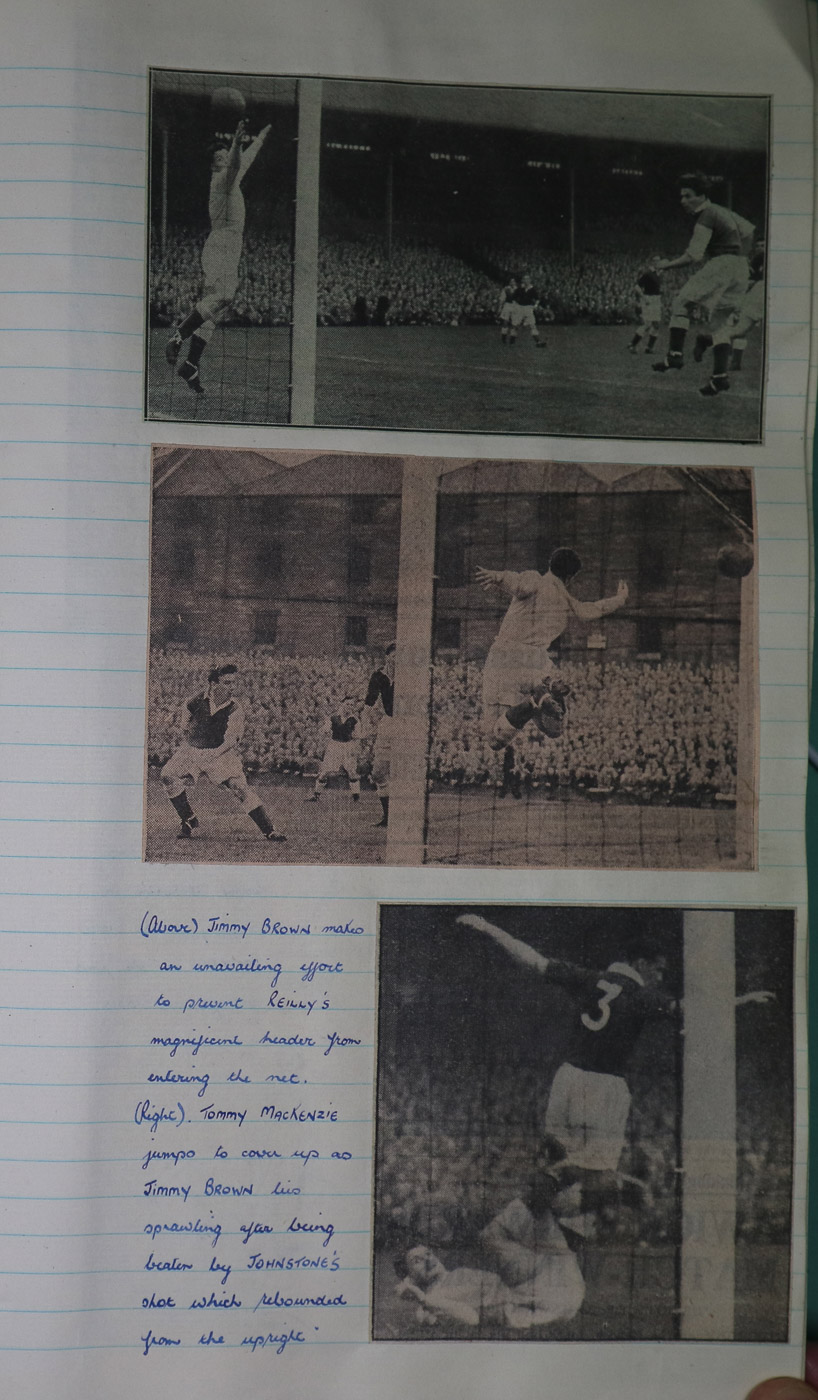 (Above) JIMMY BROWN makes
an unavailing effort
to prevent REILLY'S
magnificent header from
entering the net.
(Right). TOMMY MACKENZIE
jumps to cover up as
JIMMY BROWN lies
sprawling after being
beaten by JOHNSTONE'S
shot which rebounded
from the upright
3